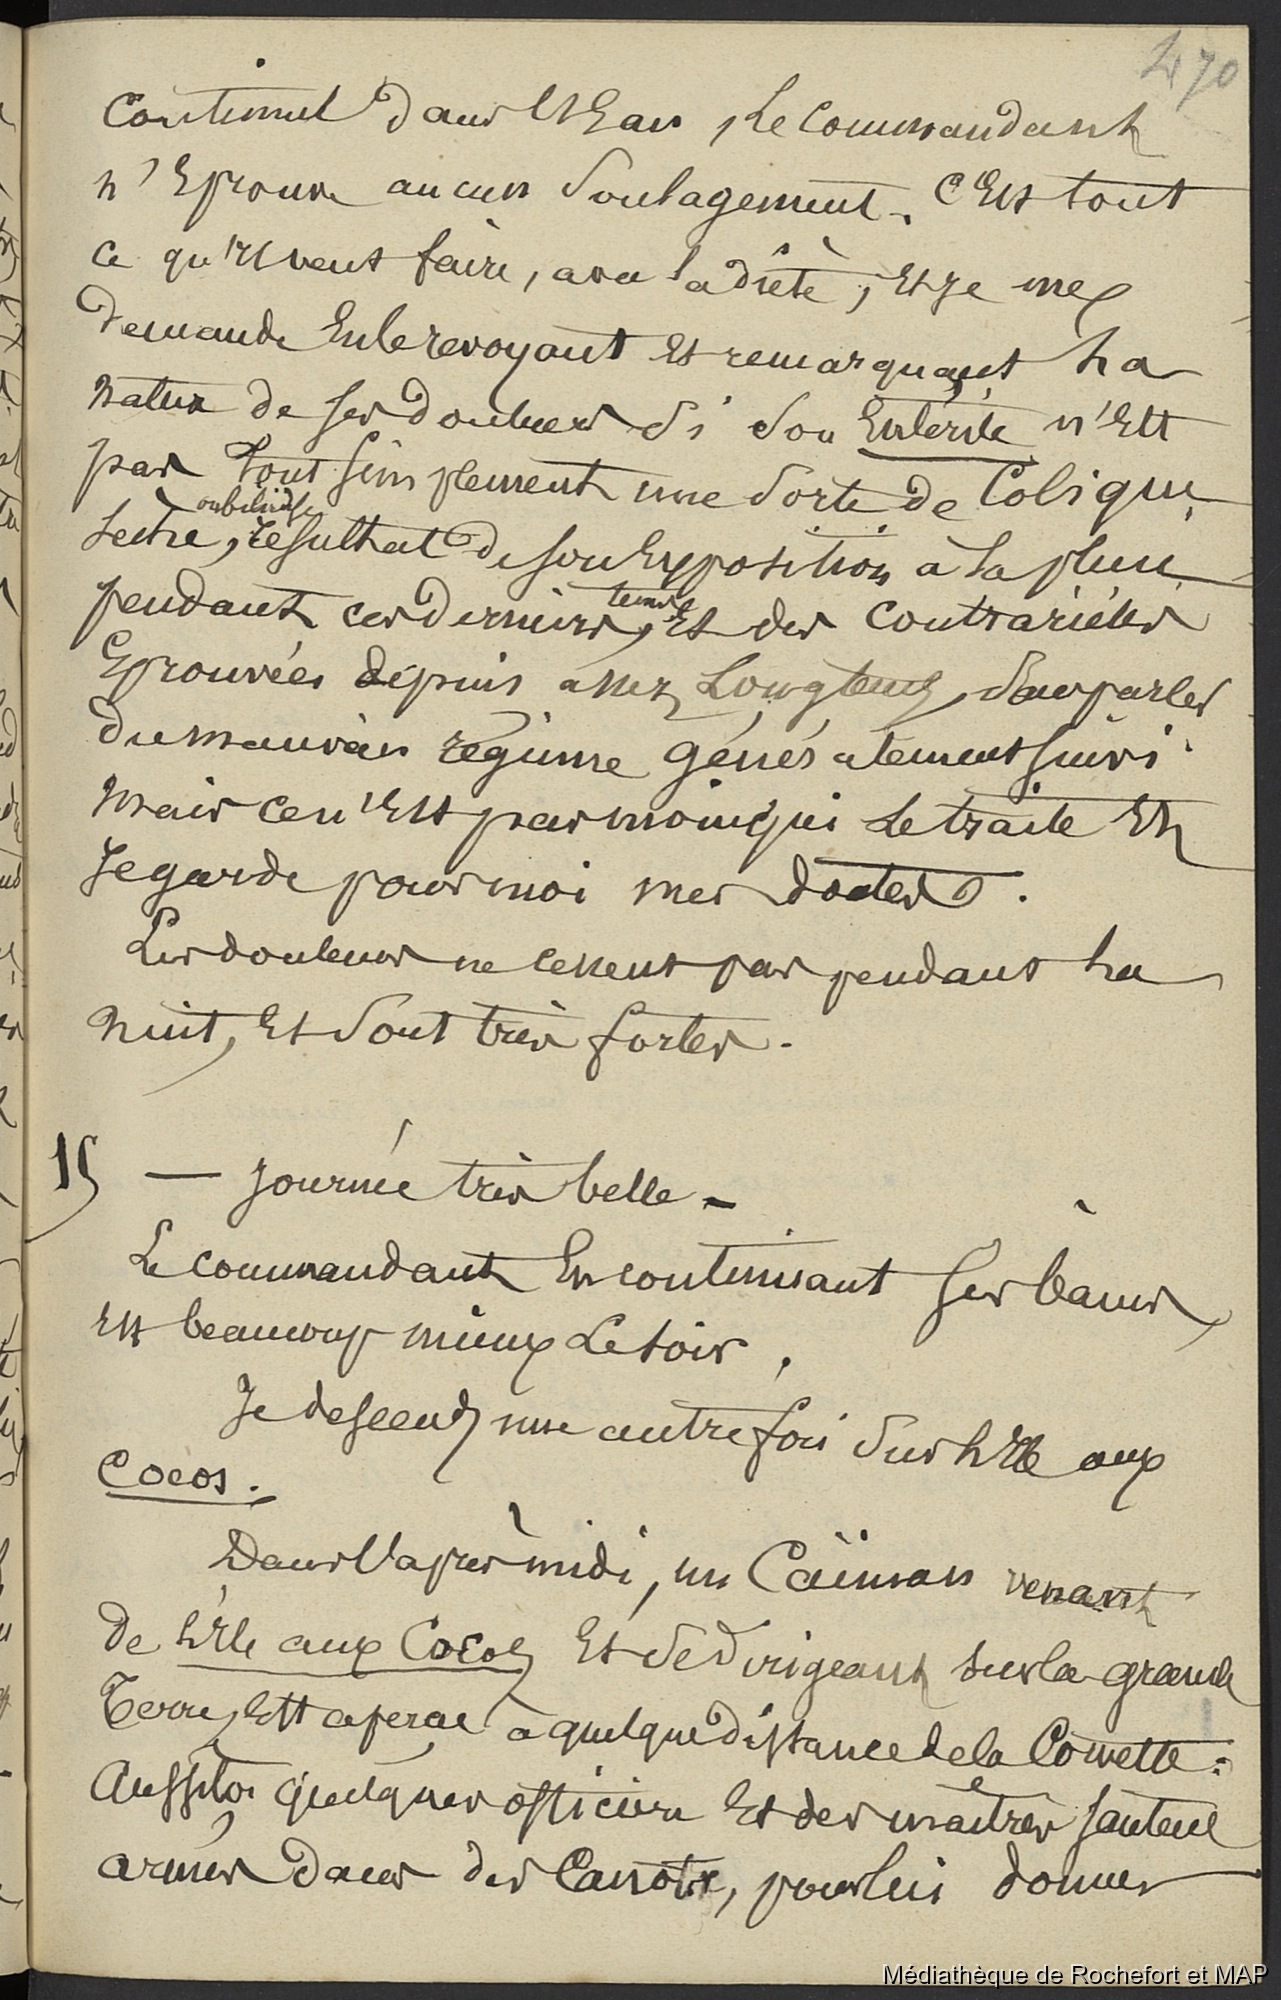 470
continuel dans l'Eau, Le Commandant
n'Eprouve aucun soulagement. C'Est tout
ce qu'il veut faire, avec la diète, Et je me
demande En le revoyant Et remarquant La
nature de ses douleurs si son Entérite n'Est
pas tout simplement une sorte de Colique
ou bilieuse
sèche, résultat de son Exposition à la pluie
temps
pendant ces derniers, Et des contrariétés
Eprouvées depuis assez Longtems, sans parler
du mauvais régime généralement suivi
Mais ce n'Est pas moi qui Le traite Et
Je garde pour moi mes doutes.
Les douleurs ne cessent pas pendant La
nuit, Et sont très fortes.
15 — Journée très belle —
Le commandant En continuant ses bains,
Est beaucoup mieux Le soir.
Je descends une autre fois sur L'Ile aux
Cocos.
Dans l'après midi, un Caïman venant
de L'Ile aux Cocos Et se dirigeant sur la grande
Terre, Est aperçu à quelque distance de la Corvette.
Aussitôt quelques officiers Et des maîtres sautent
armés dans des Canots, pour lui donner
Médiathèque de Rochefort et MAP